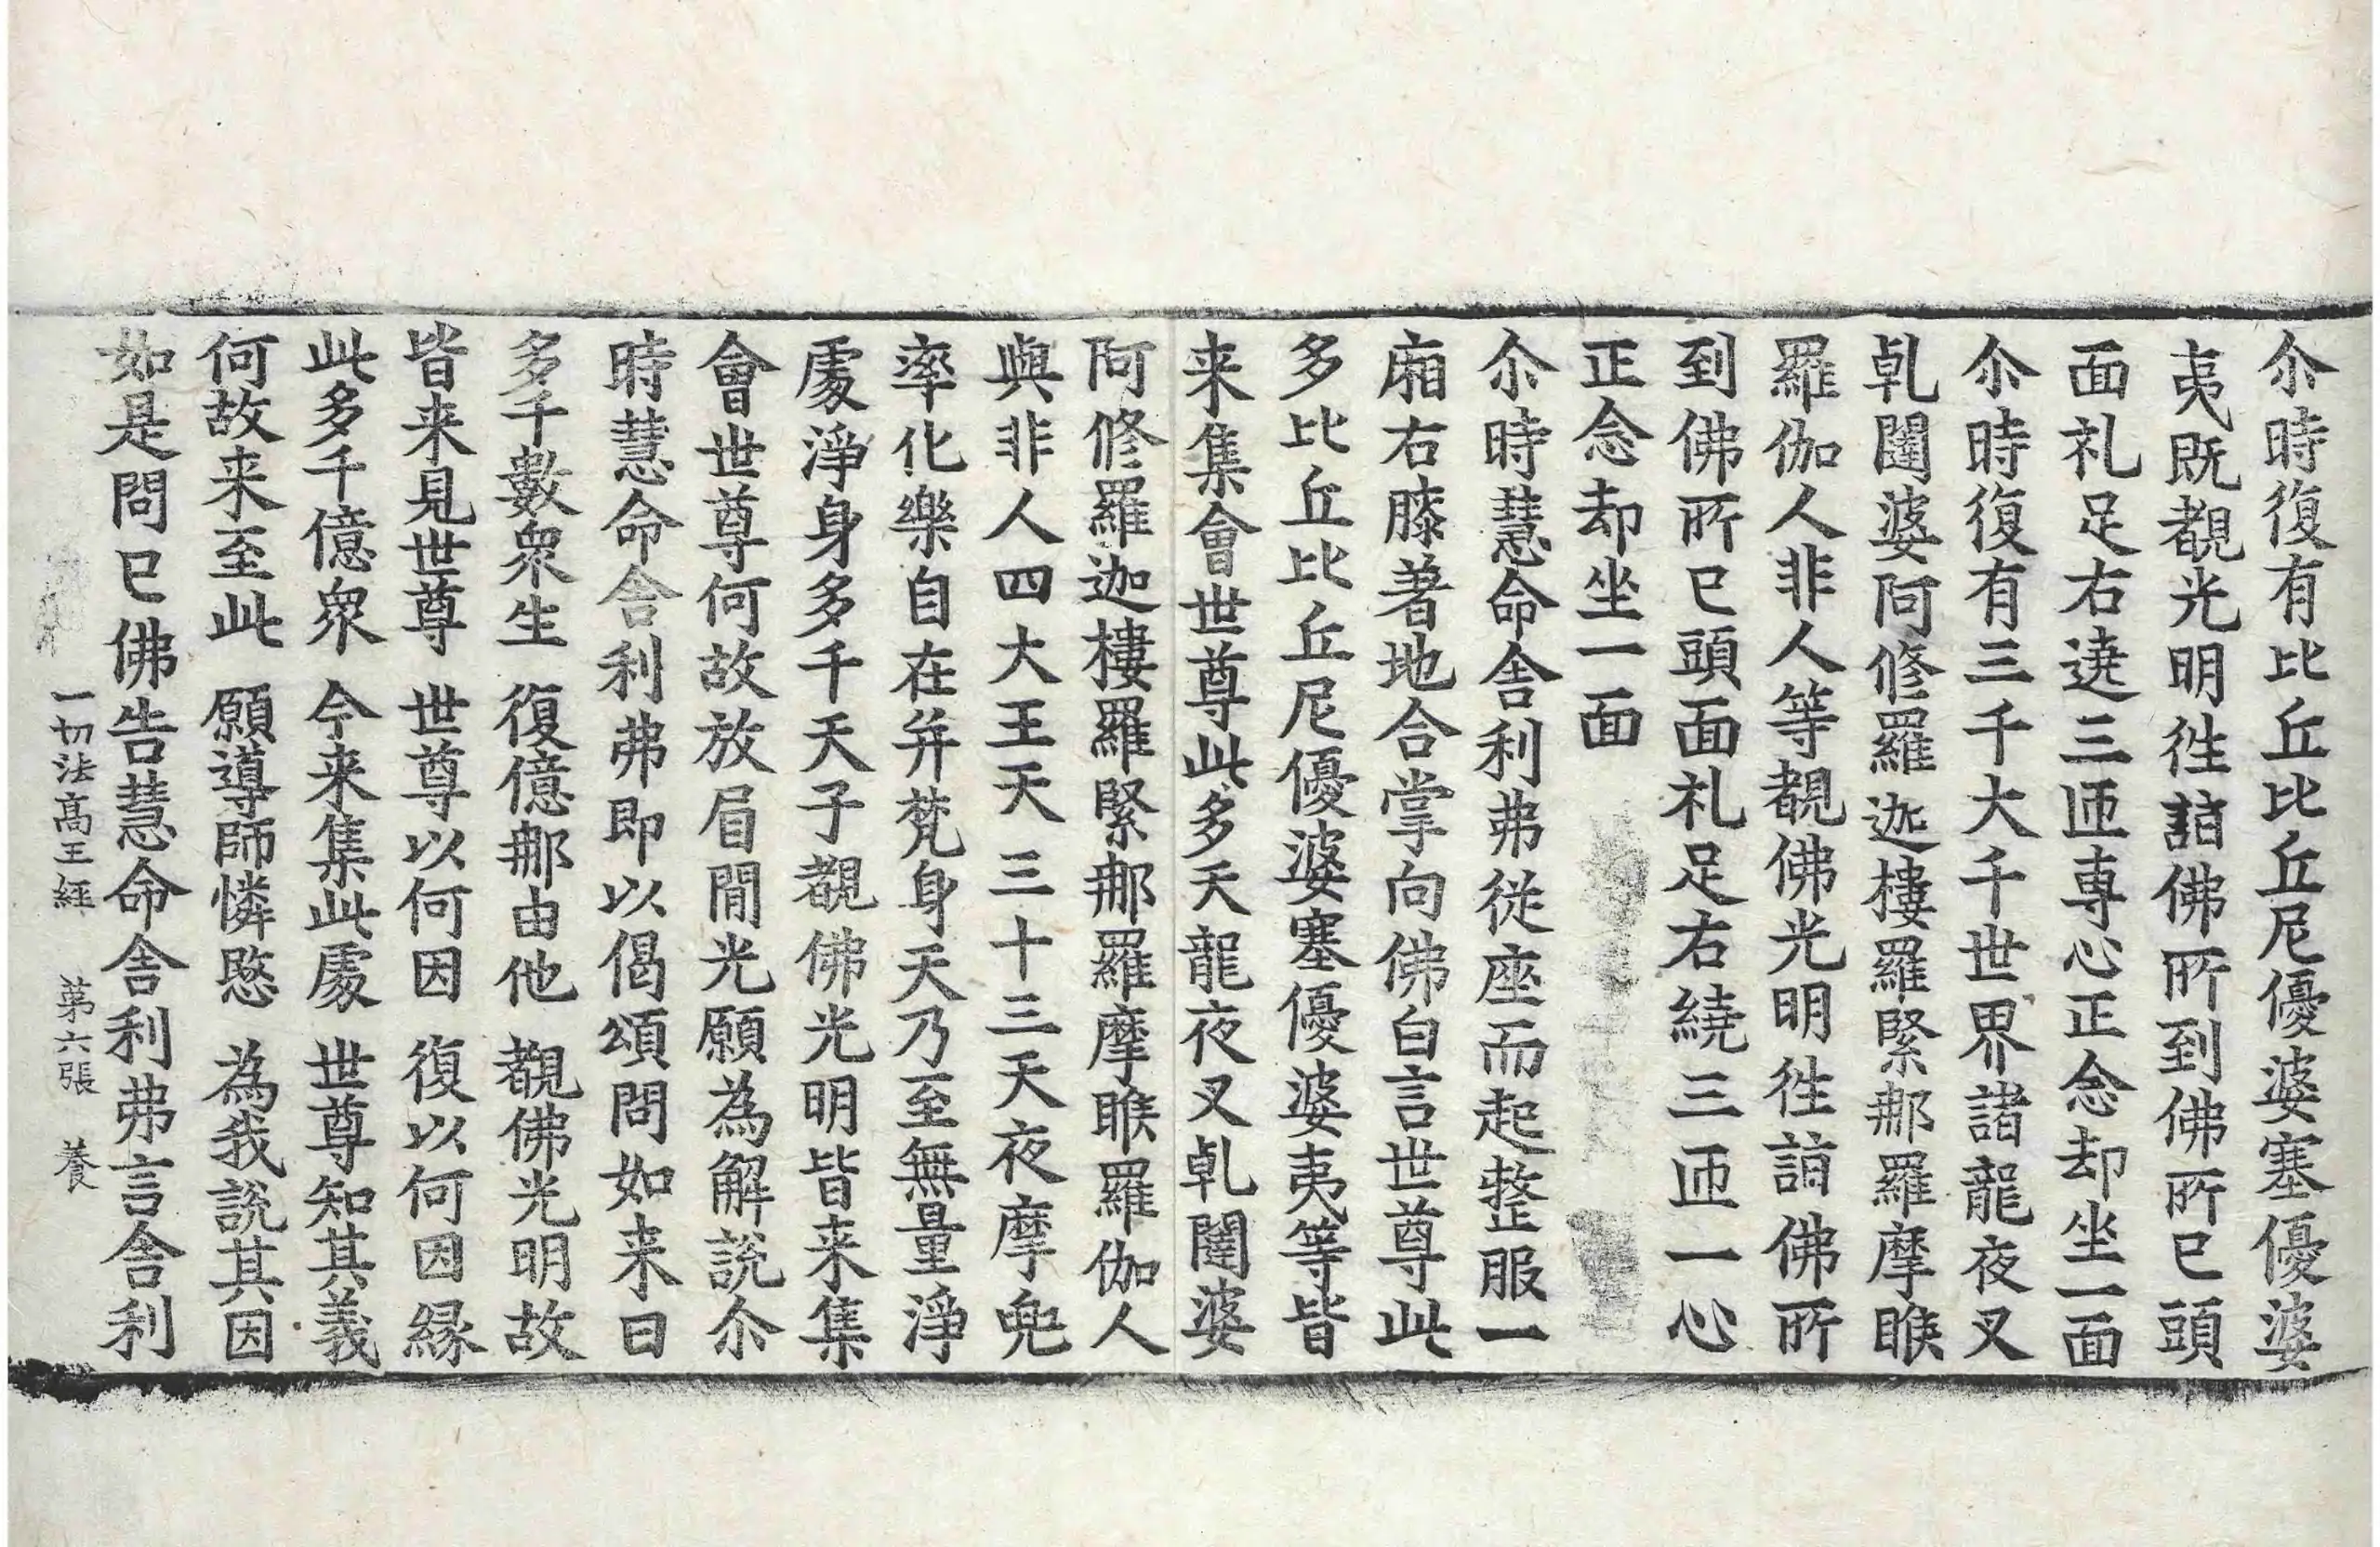 尒時復有比丘比丘尼優婆塞優婆
夷既覩光明徃詣佛所到佛所已頭
面礼足右遶三匝專心正念却坐一面
尒時復有三千大千世界諸龍夜叉
乹闥婆阿修羅迦樓羅緊那羅摩睺
羅伽人非人等覩佛光明徃詣佛所
到佛所已頭面礼足右繞三匝一心
正念却坐一面
尒時慧命舍利弗從座而起整服一
廂右膝著地合掌向佛白言世尊此
多比丘比丘尼優婆塞優婆夷等皆
来集會世尊此多天龍夜叉乹闥婆
阿修羅迦樓羅緊那羅摩睺羅伽人
與非人四大王天三十三天夜摩兜
率化樂自在并梵身天乃至無量淨
處淨身多千天子覩佛光明皆来集
會世尊何故放眉間光願為解說尒
時慧命舍利弗即以偈頌問如来曰
多千數衆生　復億那由他　覩佛光明故
皆来見世尊　世尊以何因　復以何因縁
此多千億衆　今来集此處　世尊知其義
何故来至此　願導師憐愍　為我說其因
如是問已佛告慧命舍利弗言舍利
一切法高王經　第六張　養